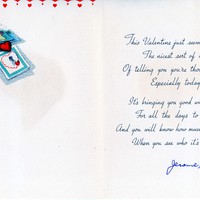 This Valentine just seem
The nicest sort of
Of telling you you're tho
Especially toda
It's bringing you good w
For all the days to
And you will know how muc
When you see who it's
Jerome,